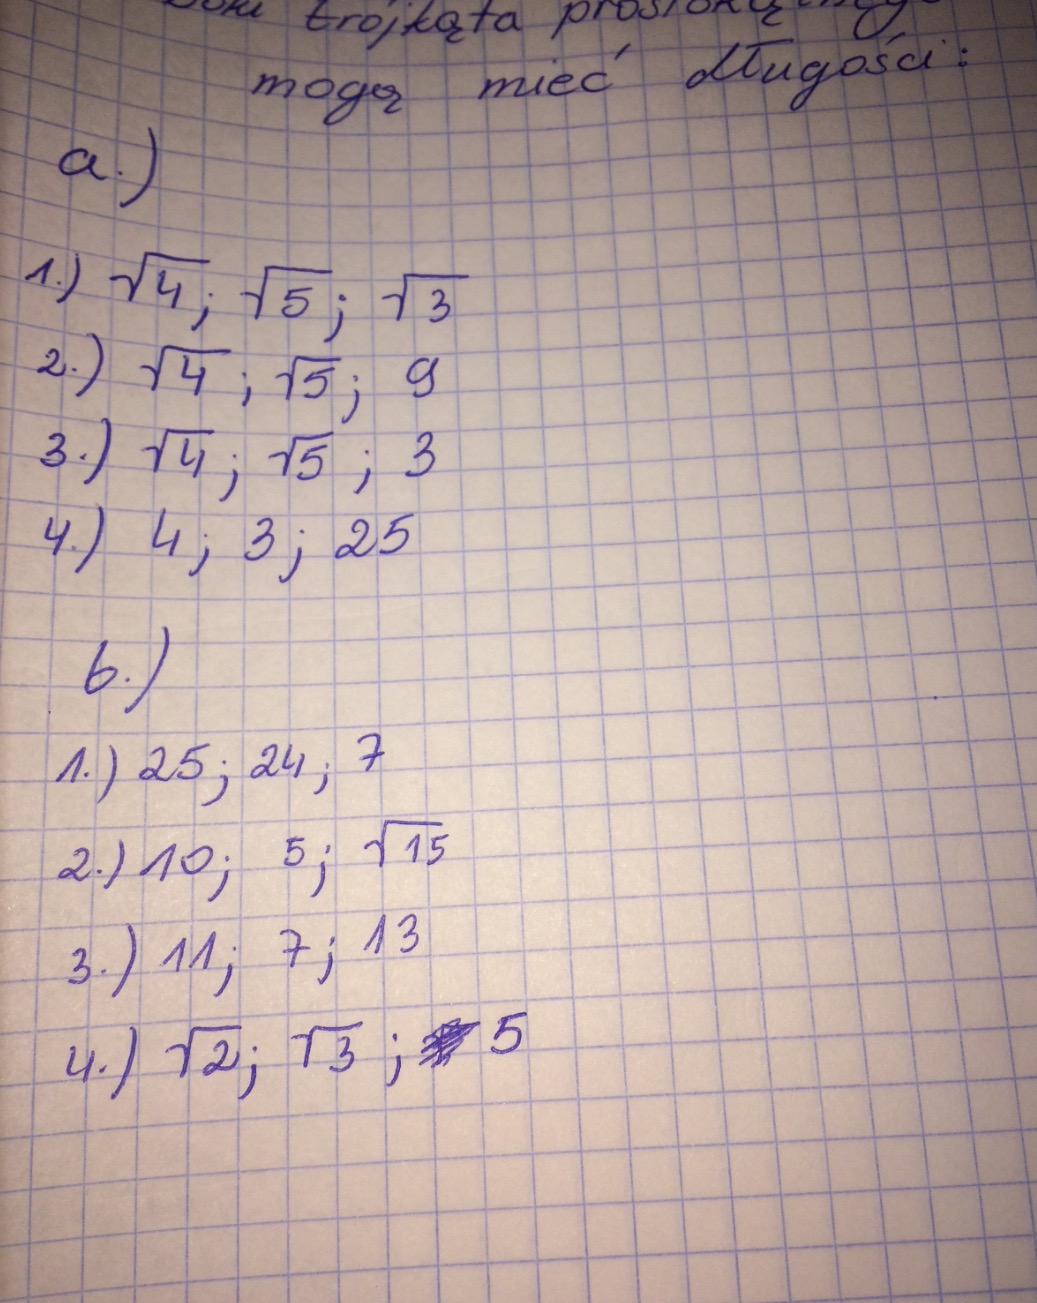 trójkąta prostokątnego
mogą mieć długości:
a.)
1.) √4; √5; √3
2.) √4; √5; 9
3.) √4; √5; 3
4.) 4; 3; 25
b.)
1.) 25; 24; 7
2.) 10; 5; √15
3.) 11; 7; 13
4.) √2; √3; 5